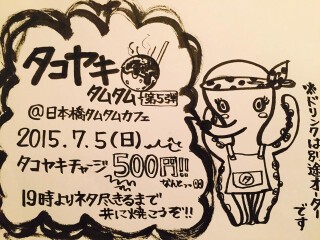 タコヤキ
タムタム 第5弾
@日本橋タムタムカフェ
2015.7.5(日)
タコヤキチャージ500円!!
なんとっ
19時よりネタ尽きるまで
共に焼こうぞ!!
※ドリンクは別途オーダーです
タ